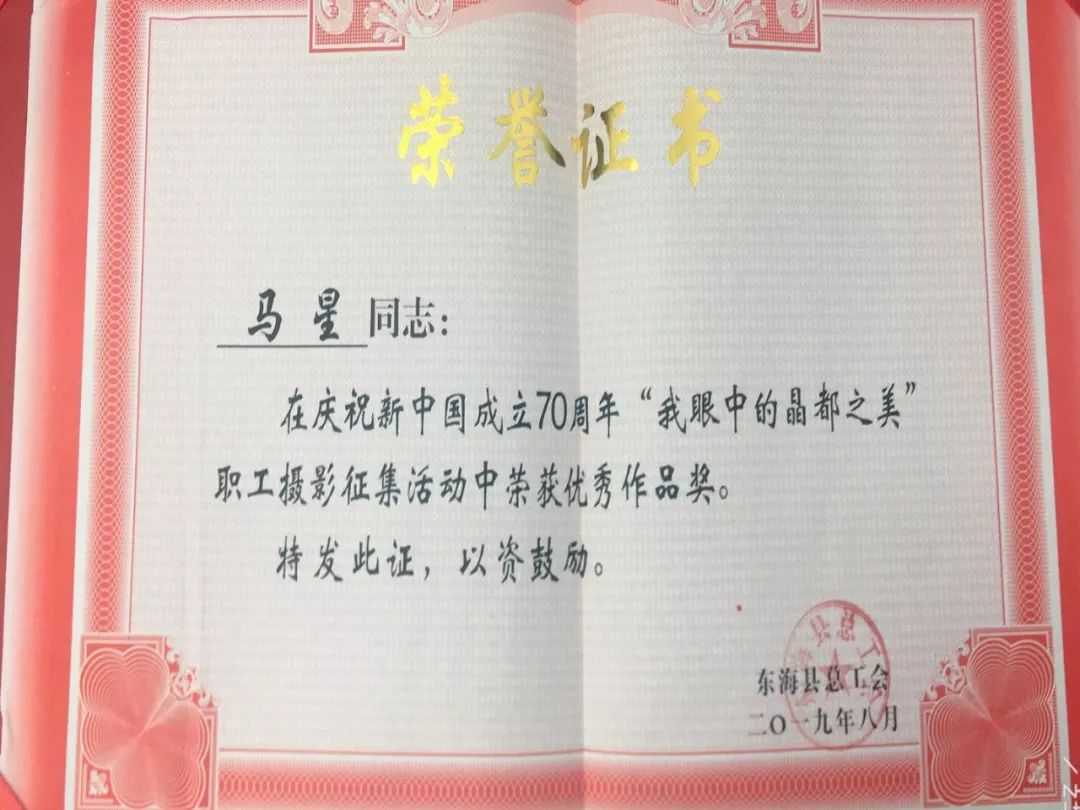 荣誉证书
马星同志：
在庆祝新中国成立70周年“我眼中的晶都之美”
职工摄影征集活动中荣获优秀作品奖。
特发此证，以资鼓励。
县总工
东海县总工会
二〇一九年八月